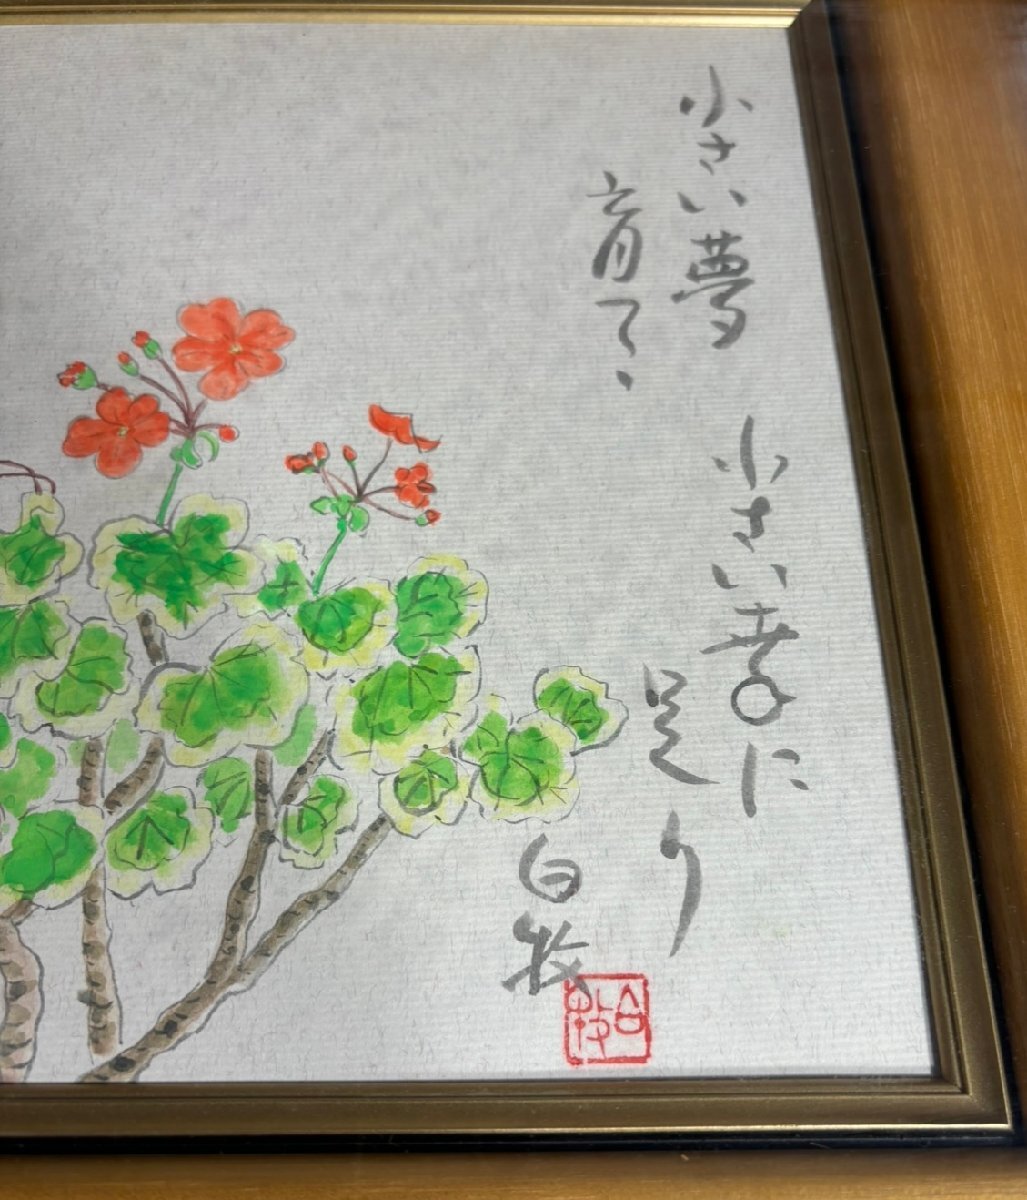 小さい夢
育て、
小さい幸に
足り
白牧